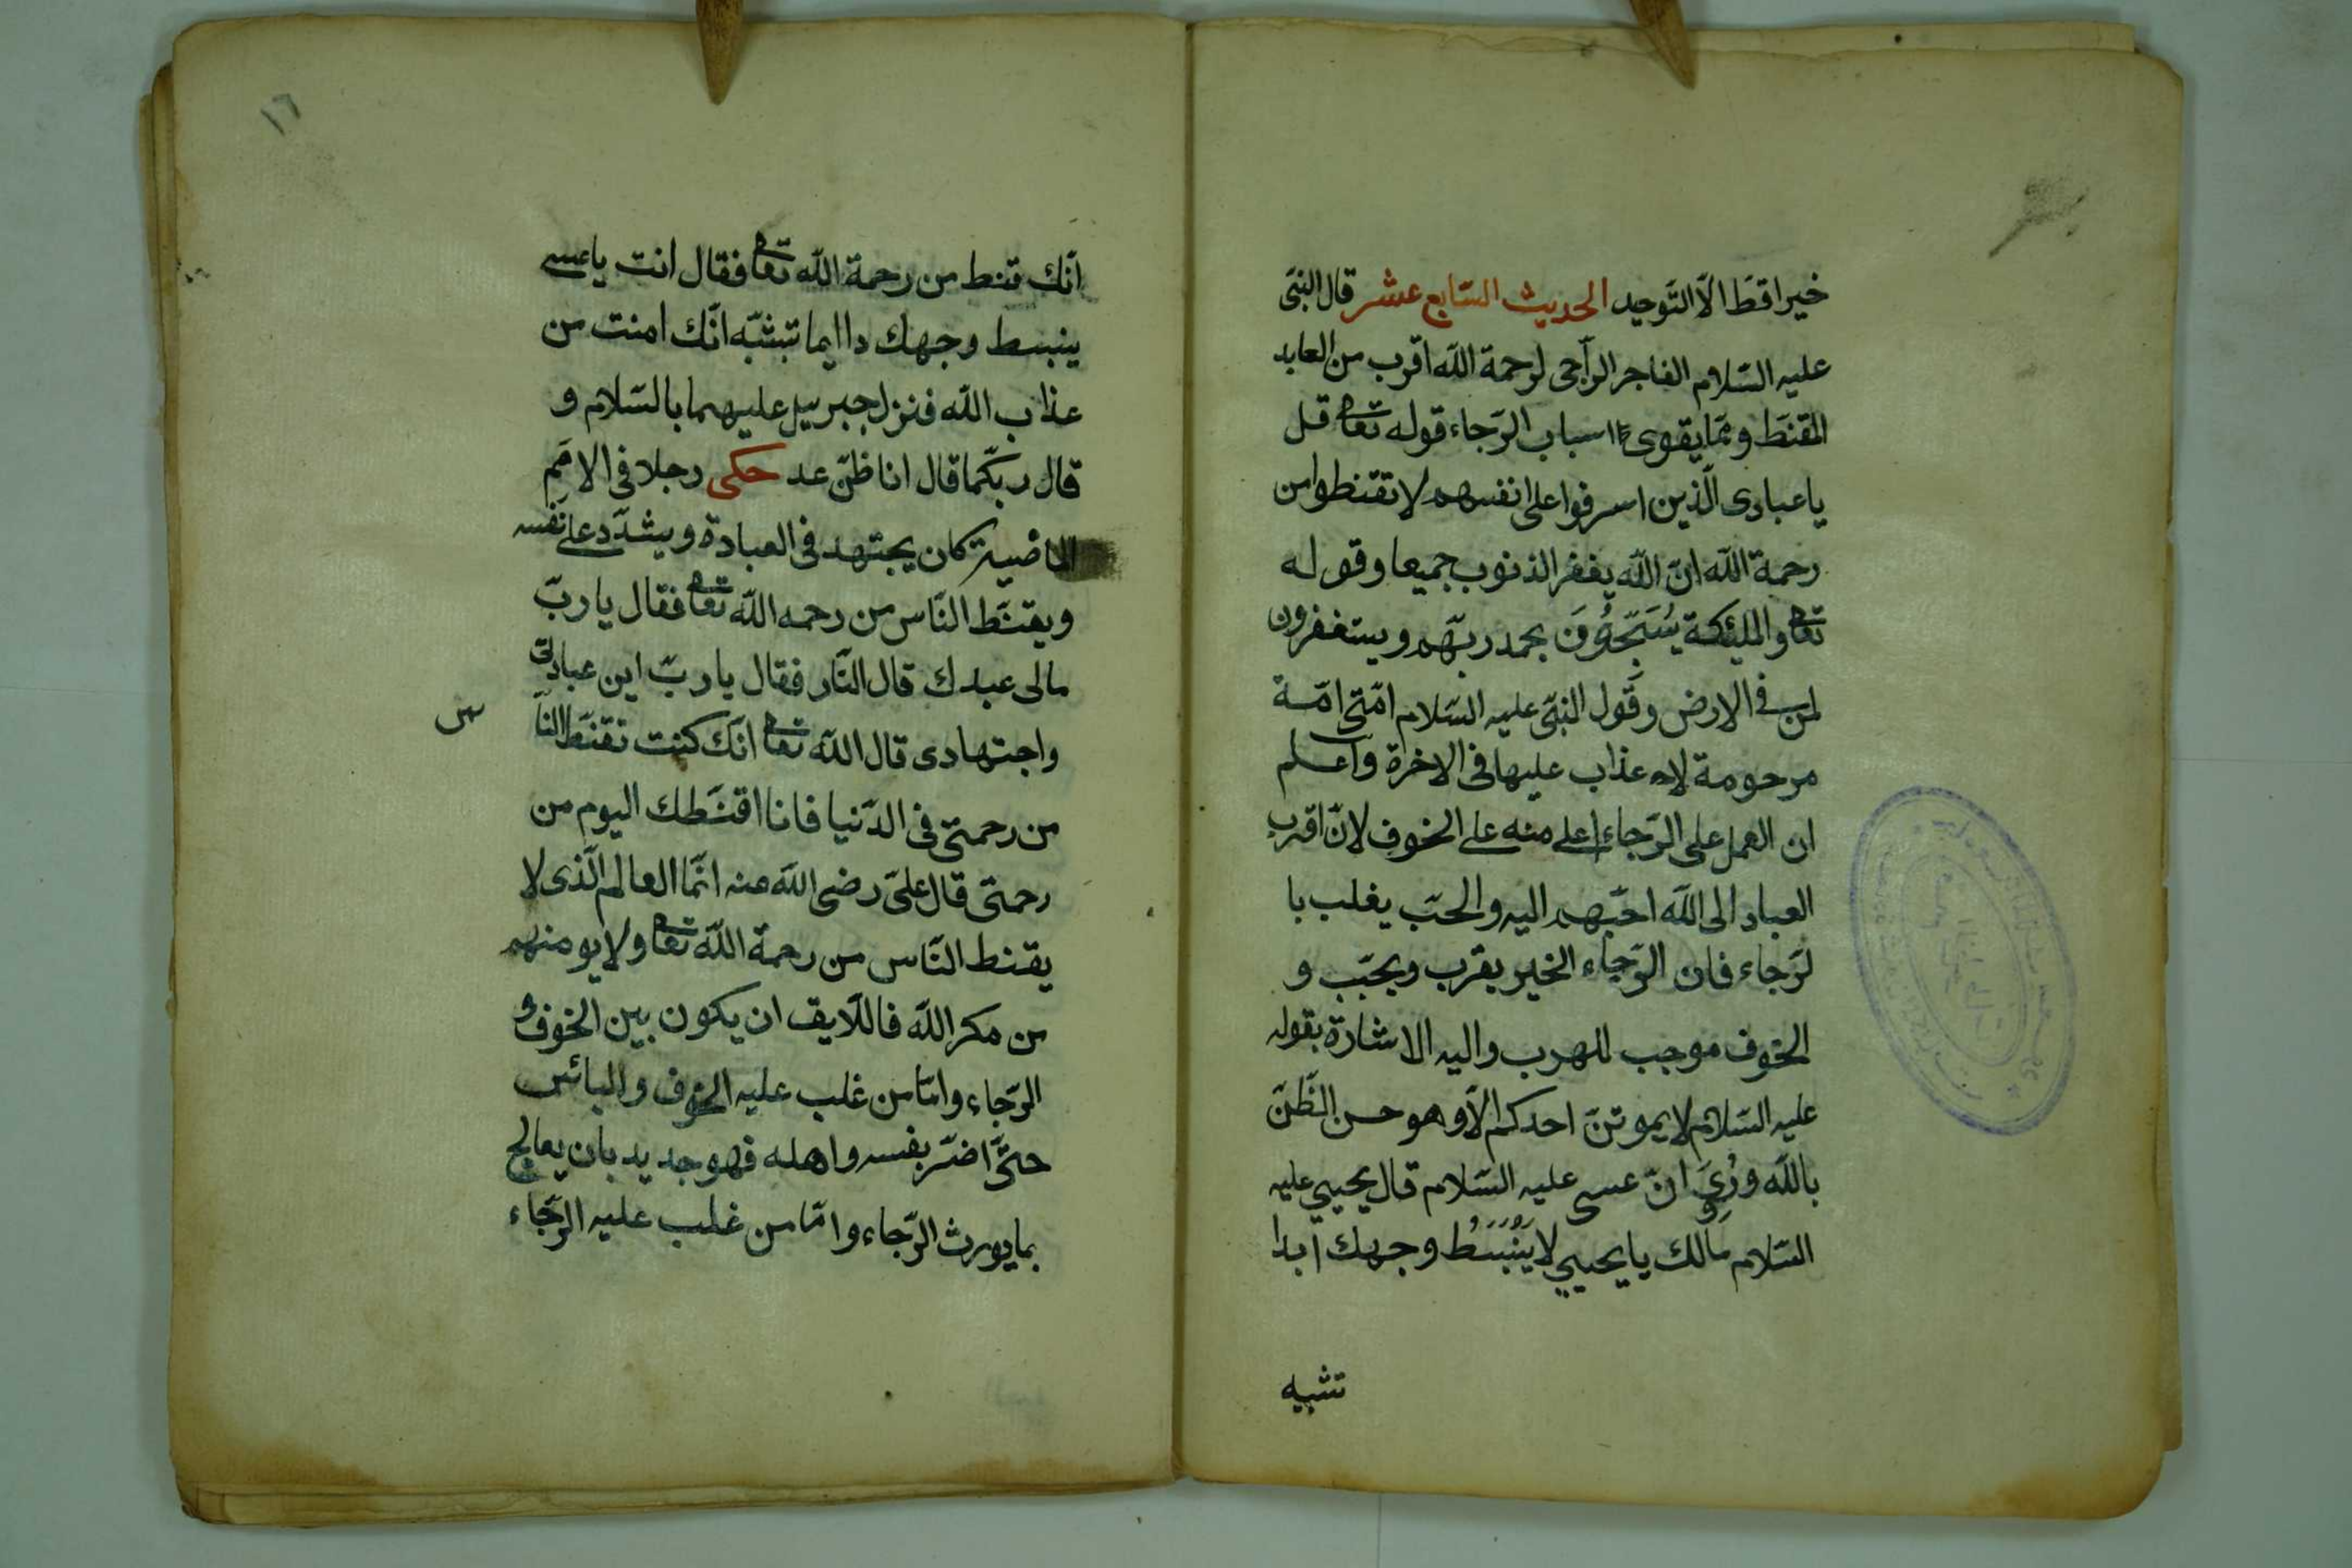 خيرا قط الّا التّوحيد الحديث السّابع عشر قال النبّى
عليه السّلام الفاجر الرّاجى لرحمة اللّه اقرب من العابد
المقنط وممّا يقوى اسباب الرّجاء قوله تعا قل
يا عبادى الّذين اسرفوا على انفسهم لا تقنطوا من
رحمة اللّه انّ اللّه يغفر الذنوب جميعا وقوله
تعا والملئكة يُسَبِّحُونَ بحمد ربّهم ويستغفرون
لمن فى الارض وقول النبّى عليه السّلام امّتى امّة
مرحومة لا عذاب عليها فى الاخرة واعلم
ان العمل على الرّجاء اعلى منه على الخوف لانّ اقرب
العباد الى اللّه احبّهم اليه والحبّ يغلب با
لرّجاء فان الرّجاء الخير يقرب ويحبّب و
الخوف موجب للهرب واليه الاشارة بقوله
عليه السّلام لا يموتنّ احدكم الّا وهو حسن الظّنّ
باللّه ورُوِىَ انّ عسى عليه السّلام قال يحيى عليه
السّلام مالك يا يحيى لا يَنْبَسَطُ وجهك ابدا
تشبه
١٦
انّك قنط من رحمة اللّه تعا فقال انت يا عسى
ينبسط وجهك داايما تبشبّه انّك امنت من
عذاب اللّه فنزل جبريل عليهما بالسّلام و
قال ربّكما قال انا ظنّ عد حكى رجلا فى الامَم
الماضية كان يجتهد فى العبادة ويشدّد على نفسه
ويقنّط النّاس من رحمه اللّه تعا فقال يا ربّ
مالى عبدك قال النّار فقال يا ربّ اين عبادتى
واجتهادى قال اللّه تعا انّك كنت تقنّط النّا
س
من رحمتى فى الدّنيا فانا اقنّطك اليوم من
رحمتى قال علىّ رضى اللّه عنه انّما العالم الّذى لا
يقنط النّاس من رحمة اللّه تعا ولا يو منهم
من مكر اللّه فاللّايق ان يكون بين الخوف و
الرّجاء وامّا من غلب عليه الخوف واليائس
حتّى اضرّ بفسه واهله فهو جديد بان يعالج
بما يورث الرّجاء وامّا من غلب عليه الرّجاء